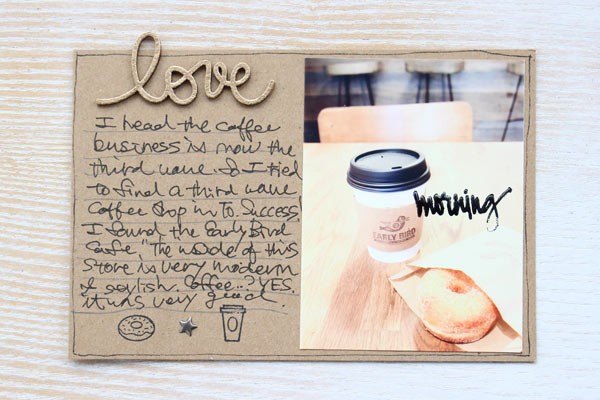 love
I head the coffee
business is now the
third wave. So I tried
to find a third wave
coffee shop in TO. Success!
I found the Early Bird
Cafe. The inside of this
store is very modern
& stylish. Coffee...? YES.
it was very good.
morning
EARLY BIRD